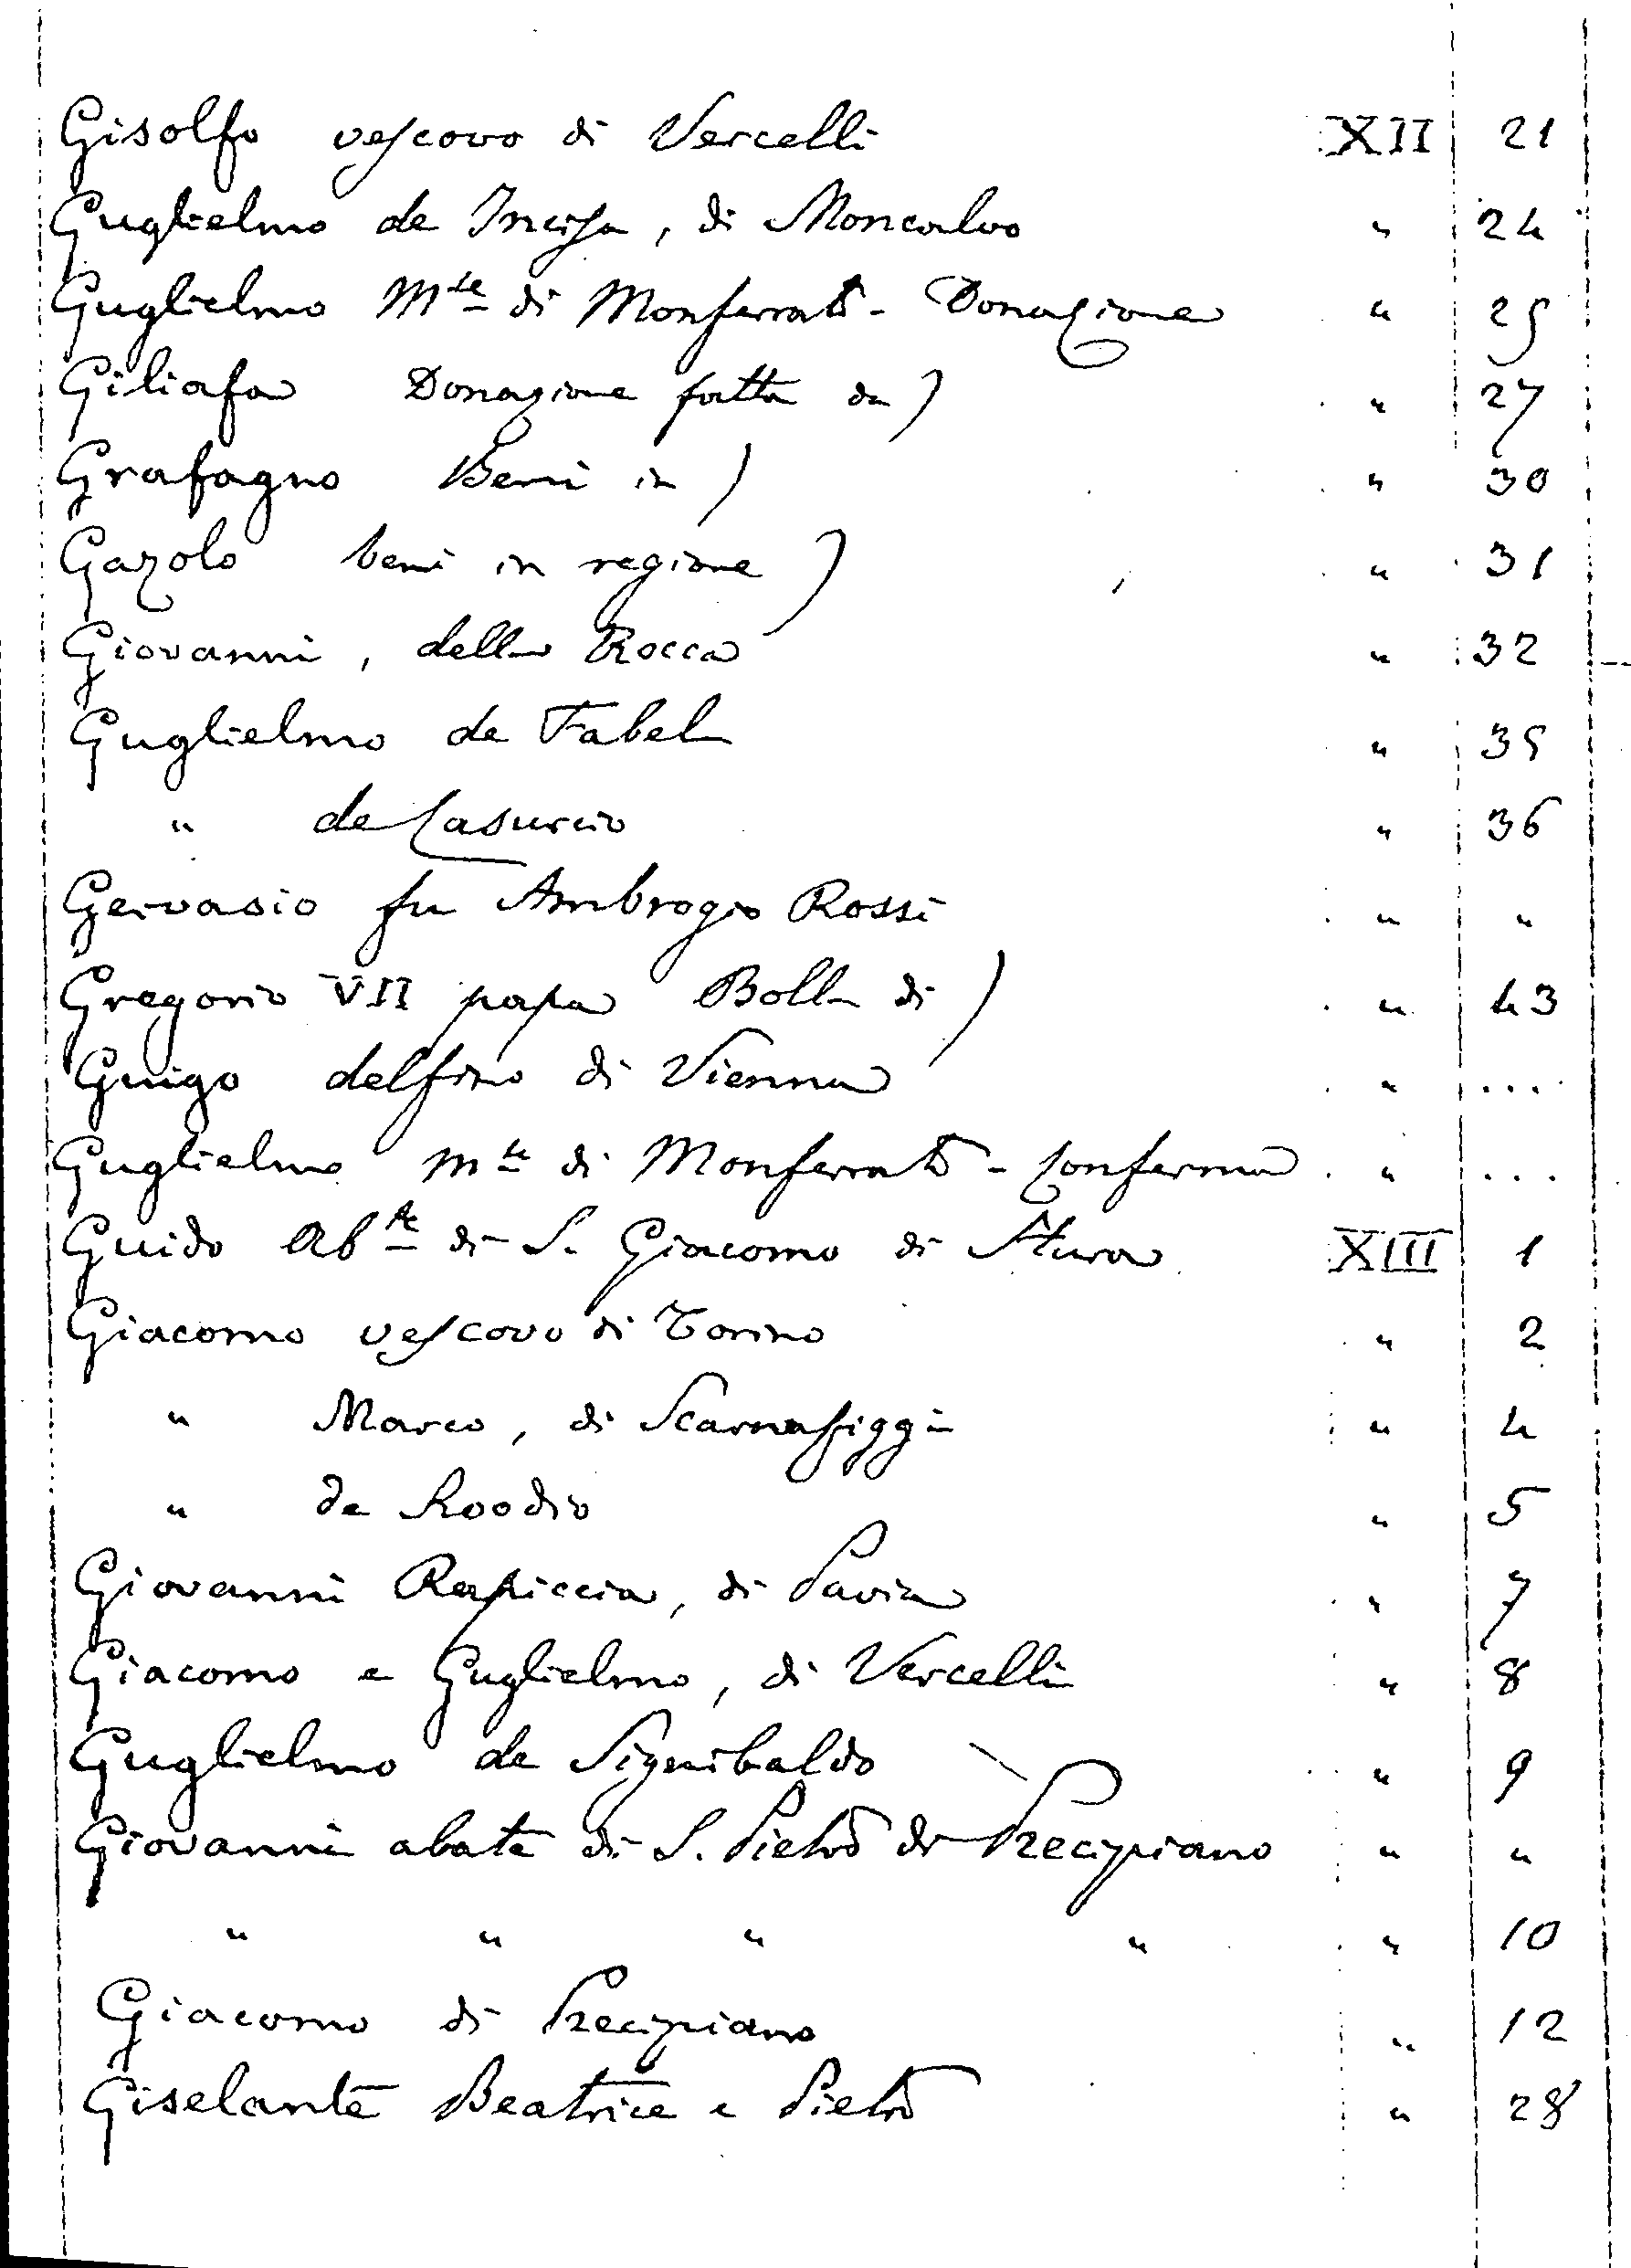 Gisolfo vescovo di Vercelli XII 21
Guglielmo de Incisa, di Moncalvo " 24
Guglielmo Mse di Monferrato - Donazione " 25
Giliafa Donazione fatta da) " 27
Grafagno Beni in) " 30
Gazolo beni in regione) " 31
Giovanni, della Rocca " 32
Guglielmo de Fabela " 35
" de Casurcio " 36
Gervasio fu Ambrogio Rossi " "
Gregorio VII papa Bolla di) " 43
Guigo delfino di Vienna " ...
Guglielmo Mse di Monferrato - Conferma " ...
Guido Abte di S. Giacomo di Stura XIII 1
Giacomo vescovo di Torino " 2
" Marco, di Scarnafiggi " 4
" de Roodio " 5
Giovanni Rapiccia, di Pavia " 7
Giacomo e Guglielmo, di Vercelli " 8
Guglielmo de Signibaldo " 9
Giovanni abate di S. Pietro di Precipiano " "
" " " " " 10
Giacomo di Precipiano " 12
Giselante Beatrice e Pietro " 28